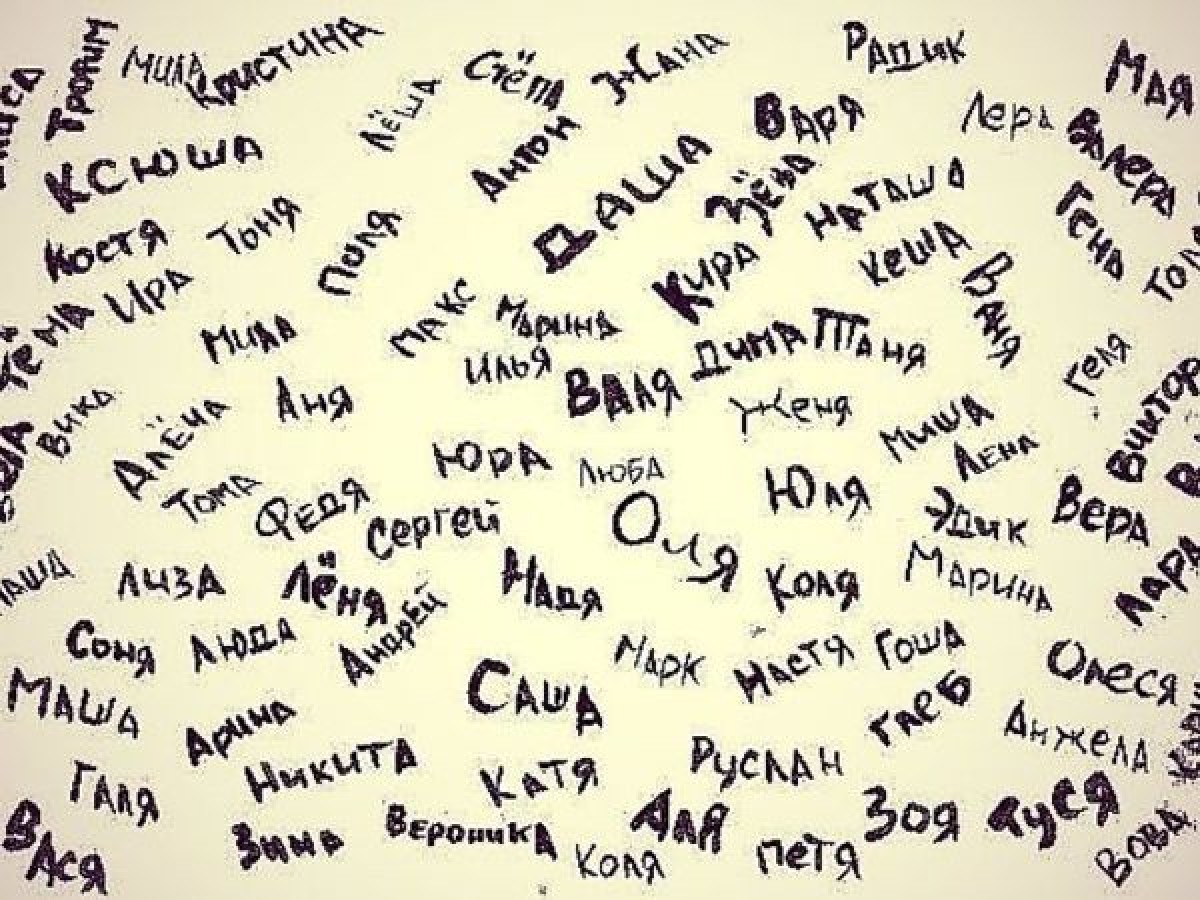 Трофим
Мила
Кристина
Лёша
Стёпа
Жанна
Радик
Мая
Ксюша
Антон
Варя
Лера
Валера
Даша
Зёва
Наташа
Гена
Костя
Тоня
Поля
Кира
Кеша
Ваня
Тёма
Ира
Мила
Макс
Марина
Илья
Дима
Таня
Геля
Вика
Алёна
Аня
Валя
Женя
Миша
Лена
Виктор
Тома
Федя
Сергей
Юра
Люба
Оля
Юля
Эдик
Вера
Лиза
Лёня
Андрей
Надя
Коля
Марина
Лара
Соня
Люда
Марк
Настя
Гоша
Олеся
Маша
Арина
Саша
Глеб
Анжела
Галя
Никита
Катя
Руслан
Вася
Зина
Вероника
Коля
Аля
Петя
Зоя
Дуся
Вова